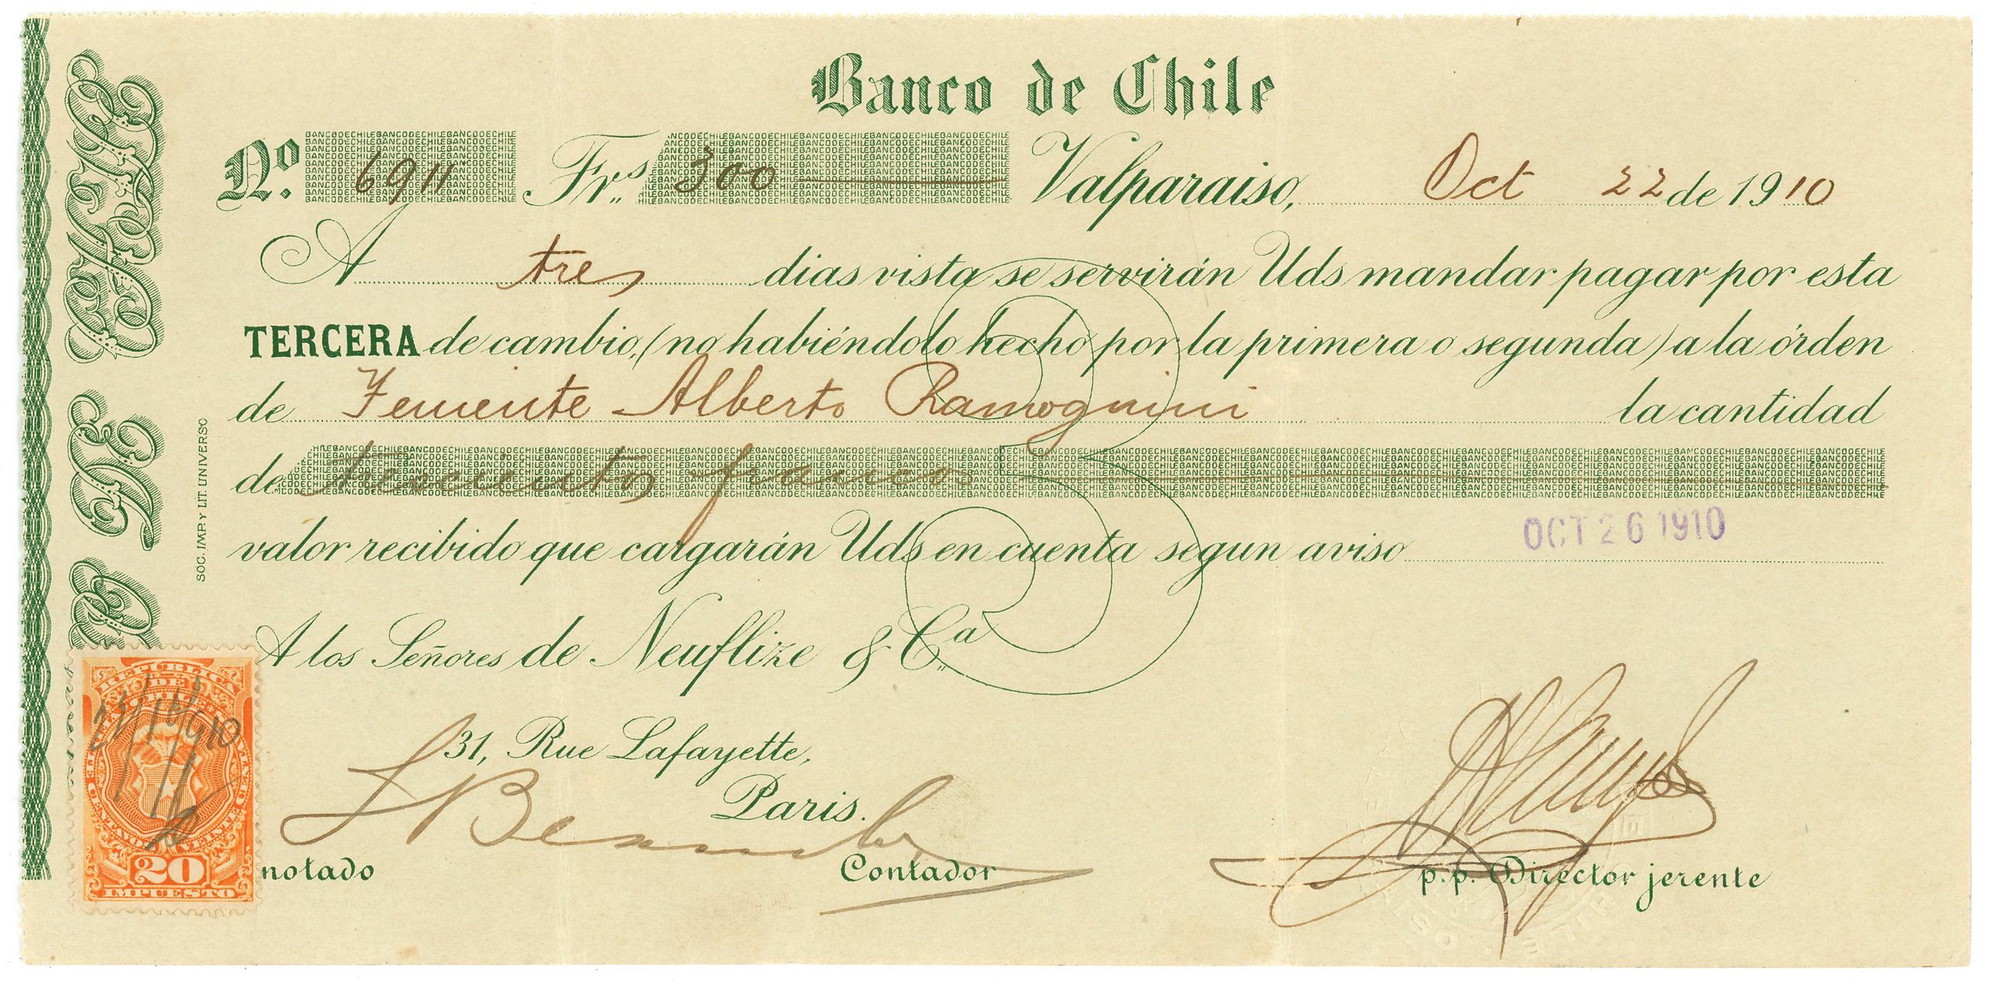 Banco de Chile
No. 6911 Frs. 300 Valparaiso, Oct 22 de 1910
A tres dias vista se servirán Uds mandar pagar por esta
TERCERA de cambio, (no habiéndolo hecho por la primera o segunda) a la órden
de Teniente Alberto Ramognini la cantidad
de trescientos francos
valor recibido que cargarán Uds en cuenta segun aviso
OCT 26 1910
A los Señores de Neuflize & Ca.
31, Rue Lafayette,
Paris.
notado Contador p.p. Director jerente
SOC. IMP. Y LIT. UNIVERSO
O DE CHILE
REPUBLICA
DE
CHILE
20
IMPUESTO
3